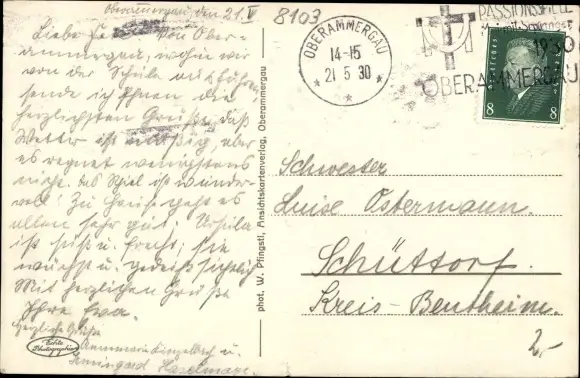 Oberammergau, den 21. V
8103
Liebe
von Ober-
ammergau, wohin wir
von der Schule aus fuhren
sende ich Ihnen die
herzlichsten Grüße, das
Wetter ist mäßig, aber
es regnet wenigstens
nicht. das Spiel ist wunder-
voll! Zu Hause geht es
allen sehr gut. Ursula
ist süß u. frech, sie
wächst u. gedeiht sichtlich
Mit herzlichen Grüßen
Ihre Eva.
herzliche Grüße
Annemarie u.
Irmingard
Echte
Photographie
phot. W. Pfingstl, Ansichtskartenverlag, Oberammergau
OBERAMMERGAU
14-15
21 5 30
PASSIONSSPIELE
1930
OBERAMMERGAU
8 8
Schwester
Luise Ostermann.
Schüttorf.
Kreis-Bentheim.
2,-